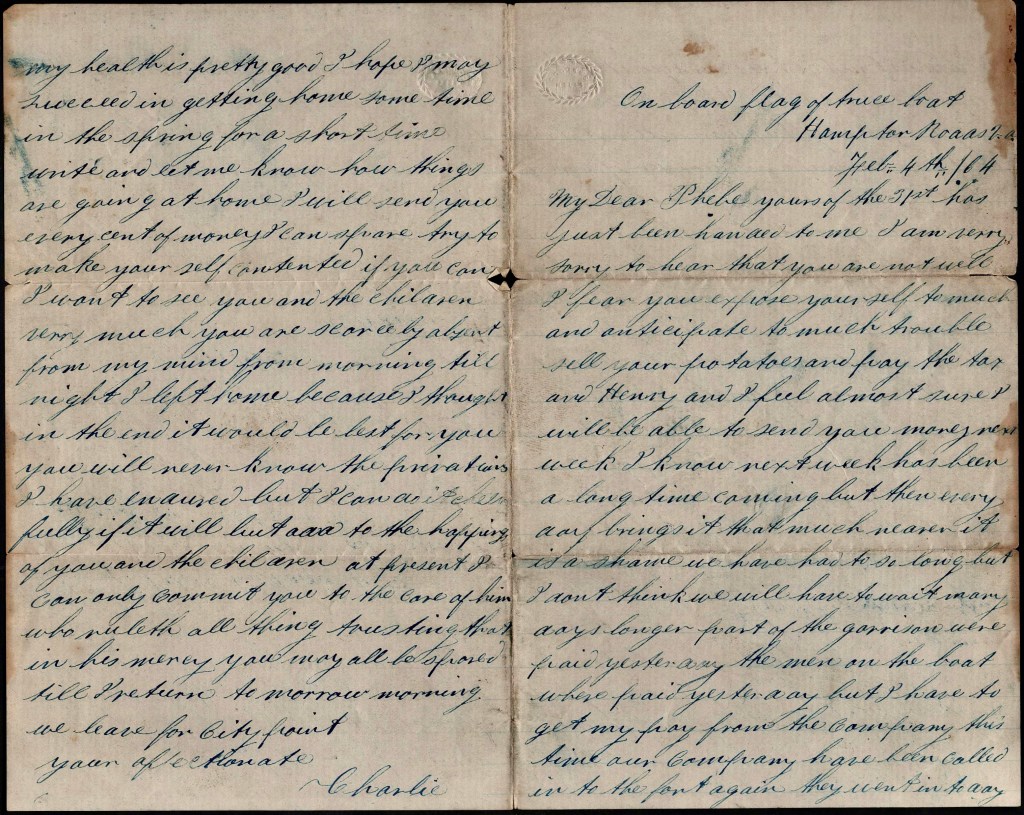 On board flag of truce boat
Hampton Roads Va.
Feb. 4th /64
My Dear Phebe yours of the 31st has
just been handed to me I am verry
sorry to hear that you are not well
I fear you expose your self to much
and anticipate to much trouble
sell your potatoes and pay the tax
and Henry and I feel almost sure I
will be able to send you money next
week I know next week has been
a long time coming but then every
day brings it that much nearer it
is a shame we have had to so long but
I dont think we will have to wait many
days longer part of the garrison were
paid yesterday the men on the boat
where paid yesterday but I have to
get my pay from the Company this
time our Company have been called
in to the fort again they went in to day
my health is pretty good I hope I may
succeed in getting home some time
in the spring for a short time
write and let me know how things
are going at home I will send you
every cent of money I can spare try to
make your self contented if you can
I want to see you and the children
verry much you are scarcely absent
from my mind from morning till
night I left home because I thought
in the end it would be best for you
you will never know the privations
I have endured but I can do it cheer
fully if it will but add to the happiness
of you and the children at present I
can only commit you to the care of him
who ruleth all thing trusting that
in his mercy you may all be spared
till I return to morrow morning
we leave for City point
your affectionate
Charlie